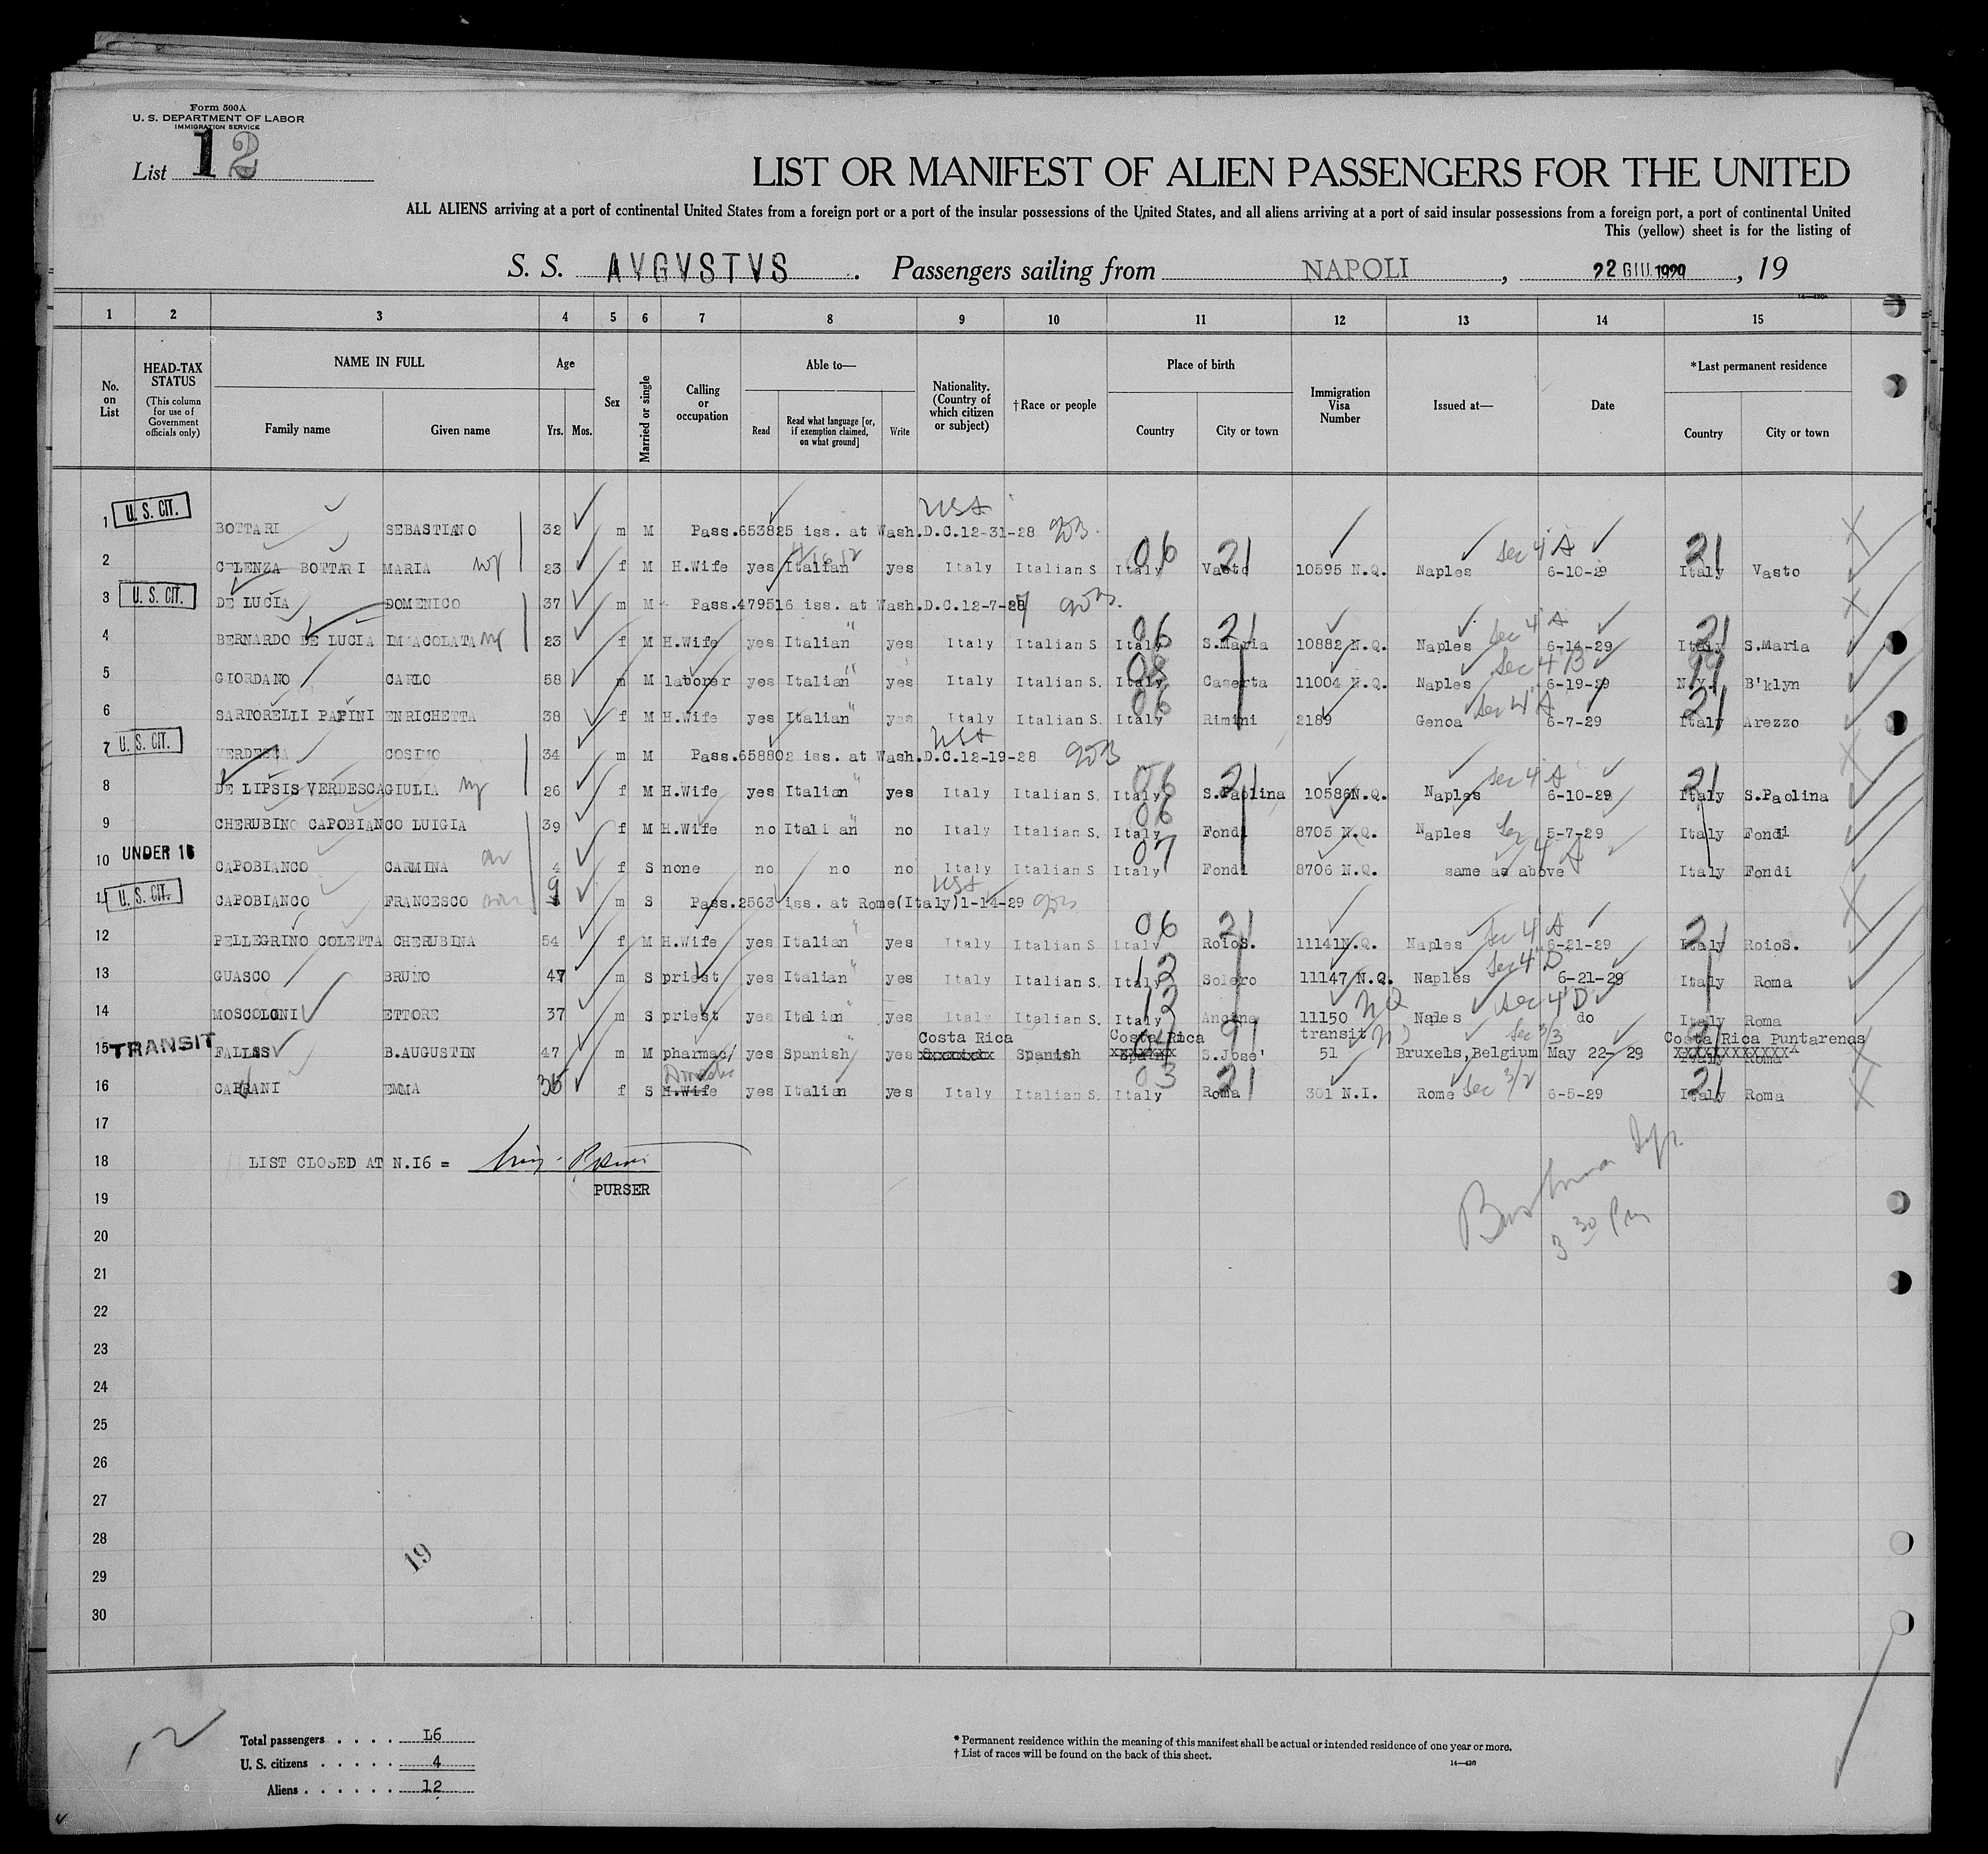 Form 500A
U. S. DEPARTMENT OF LABOR
IMMIGRATION SERVICE
List 12
LIST OR MANIFEST OF ALIEN PASSENGERS FOR THE UNITED
ALL ALIENS arriving at a port of continental United States from a foreign port or a port of the insular possessions of the United States, and all aliens arriving at a port of said insular possessions from a foreign port, a port of continental United
This (yellow) sheet is for the listing of
S. S. AVGVSTVS . Passengers sailing from NAPOLI , 22 GIU. 1929 , 19
14—430
1 2 3 4 5 6 7 8 9 10 11 12 13 14 15
No. on List
HEAD-TAX STATUS (This column for use of Government officials only)
NAME IN FULL Family name Given name
Age Yrs. Mos.
Sex
Married or single
Calling or occupation
Able to— Read Read what language [or, if exemption claimed, on what ground] Write
Nationality. (Country of which citizen or subject)
†Race or people
Place of birth Country City or town
Immigration Visa Number
Issued at—
Date
*Last permanent residence Country City or town
1 U. S. CIT. BOTTARI SEBASTIANO 32 m M Pass.653825 iss. at Wash.D.C.12-31-28 USA
2 CELENZA BOTTARI MARIA wf 23 f M H.Wife yes Italian yes Italy Italian S Italy 06 Vasto 21 10595 N.Q. Naples Sec 4 A 6-10-29 Italy 21 Vasto
3 U. S. CIT. DE LUCIA DOMENICO 37 m M Pass.479516 iss. at Wash.D.C.12-7-28
4 BERNARDO DE LUCIA IMMACOLATA wf 23 f M H.Wife yes Italian " yes Italy Italian S Italy 06 S.Maria 21 10882 N.Q. Naples Sec 4 A 6-14-29 Italy 21 S.Maria
5 GIORDANO CARLO 58 m M laborer yes Italian " yes Italy Italian S. Italy 08 Caserta 11004 N.Q. Naples Sec 4 B 6-19-29 N.Y. B'klyn
6 SARTORELLI PAPINI ENRICHETTA 38 f M H.Wife yes Italian " yes Italy Italian S. Italy 06 Rimini 2189 Genoa Sec 4 A 6-7-29 Italy 21 Arezzo
7 U. S. CIT. VERDESCA COSIMO 34 m M Pass.658802 iss. at Wash.D.C.12-19-28 USA
8 DE LIPSIS VERDESCA GIULIA wf 26 f M H.Wife yes Italian " yes Italy Italian S. Italy 06 S.Paolina 21 10586N.Q. Naples Sec 4 A 6-10-29 Italy 21 S.Paolina
9 CHERUBINO CAPOBIANCO LUIGIA 39 f M H.Wife no Italian " no Italy Italian S. Italy 06 Fondi 8705 N.Q. Naples Sec 5-7-29 Italy Fondi
10 UNDER 16 CAPOBIANCO CARMINA 4 f S none no no no Italy Italian S Italy 07 Fondi 8706 N.Q. same as above 4 A Italy Fondi
11 U. S. CIT. CAPOBIANCO FRANCESCO 9 m S Pass.2563 iss. at Rome(Italy)1-14-29 USA
12 PELLEGRINO COLETTA CHERUBINA 54 f M H.Wife yes Italian " yes Italy Italian S Italy 06 RoioS. 21 11141N.Q. Naples Sec 4 A 6-21-29 Italy 21 RoioS.
13 GUASCO BRUNO 47 m S priest yes Italian " yes Italy Italian S. Italy 12 Solero 11147 N.Q. Naples Sec 4 D 6-21-29 Italy Roma
14 MOSCOLONI ETTORE 37 m S priest yes Italian " yes Italy Italian S. Italy 12 11150 NQ Nales Sec 4 D do Italy Roma
15 TRANSIT FALLAS B.AUGUSTIN 47 m M pharmac/ yes Spanish yes Costa Rica Spanish Costa Rica S.Jose' transit 51 Bruxels,Belgium Sec 3/3 May 22- 29 Costa Rica Puntarenas
16 CARRANI EMMA 36 f S H.Wife Domestic yes Italian yes Italy Italian S. Italy 03 Roma 21 301 N.I. Rome Sec 3/2 6-5-29 Italy 21 Roma
17
18 LIST CLOSED AT N.I6 =
PURSER
19
20
3 30 Pm
21
22
23
24
25
26
27
28
19
29
30
12
Total passengers . . . . 16
U. S. citizens . . . . . 4
Aliens . . . . . . 12
* Permanent residence within the meaning of this manifest shall be actual or intended residence of one year or more.
† List of races will be found on the back of this sheet.
14—430